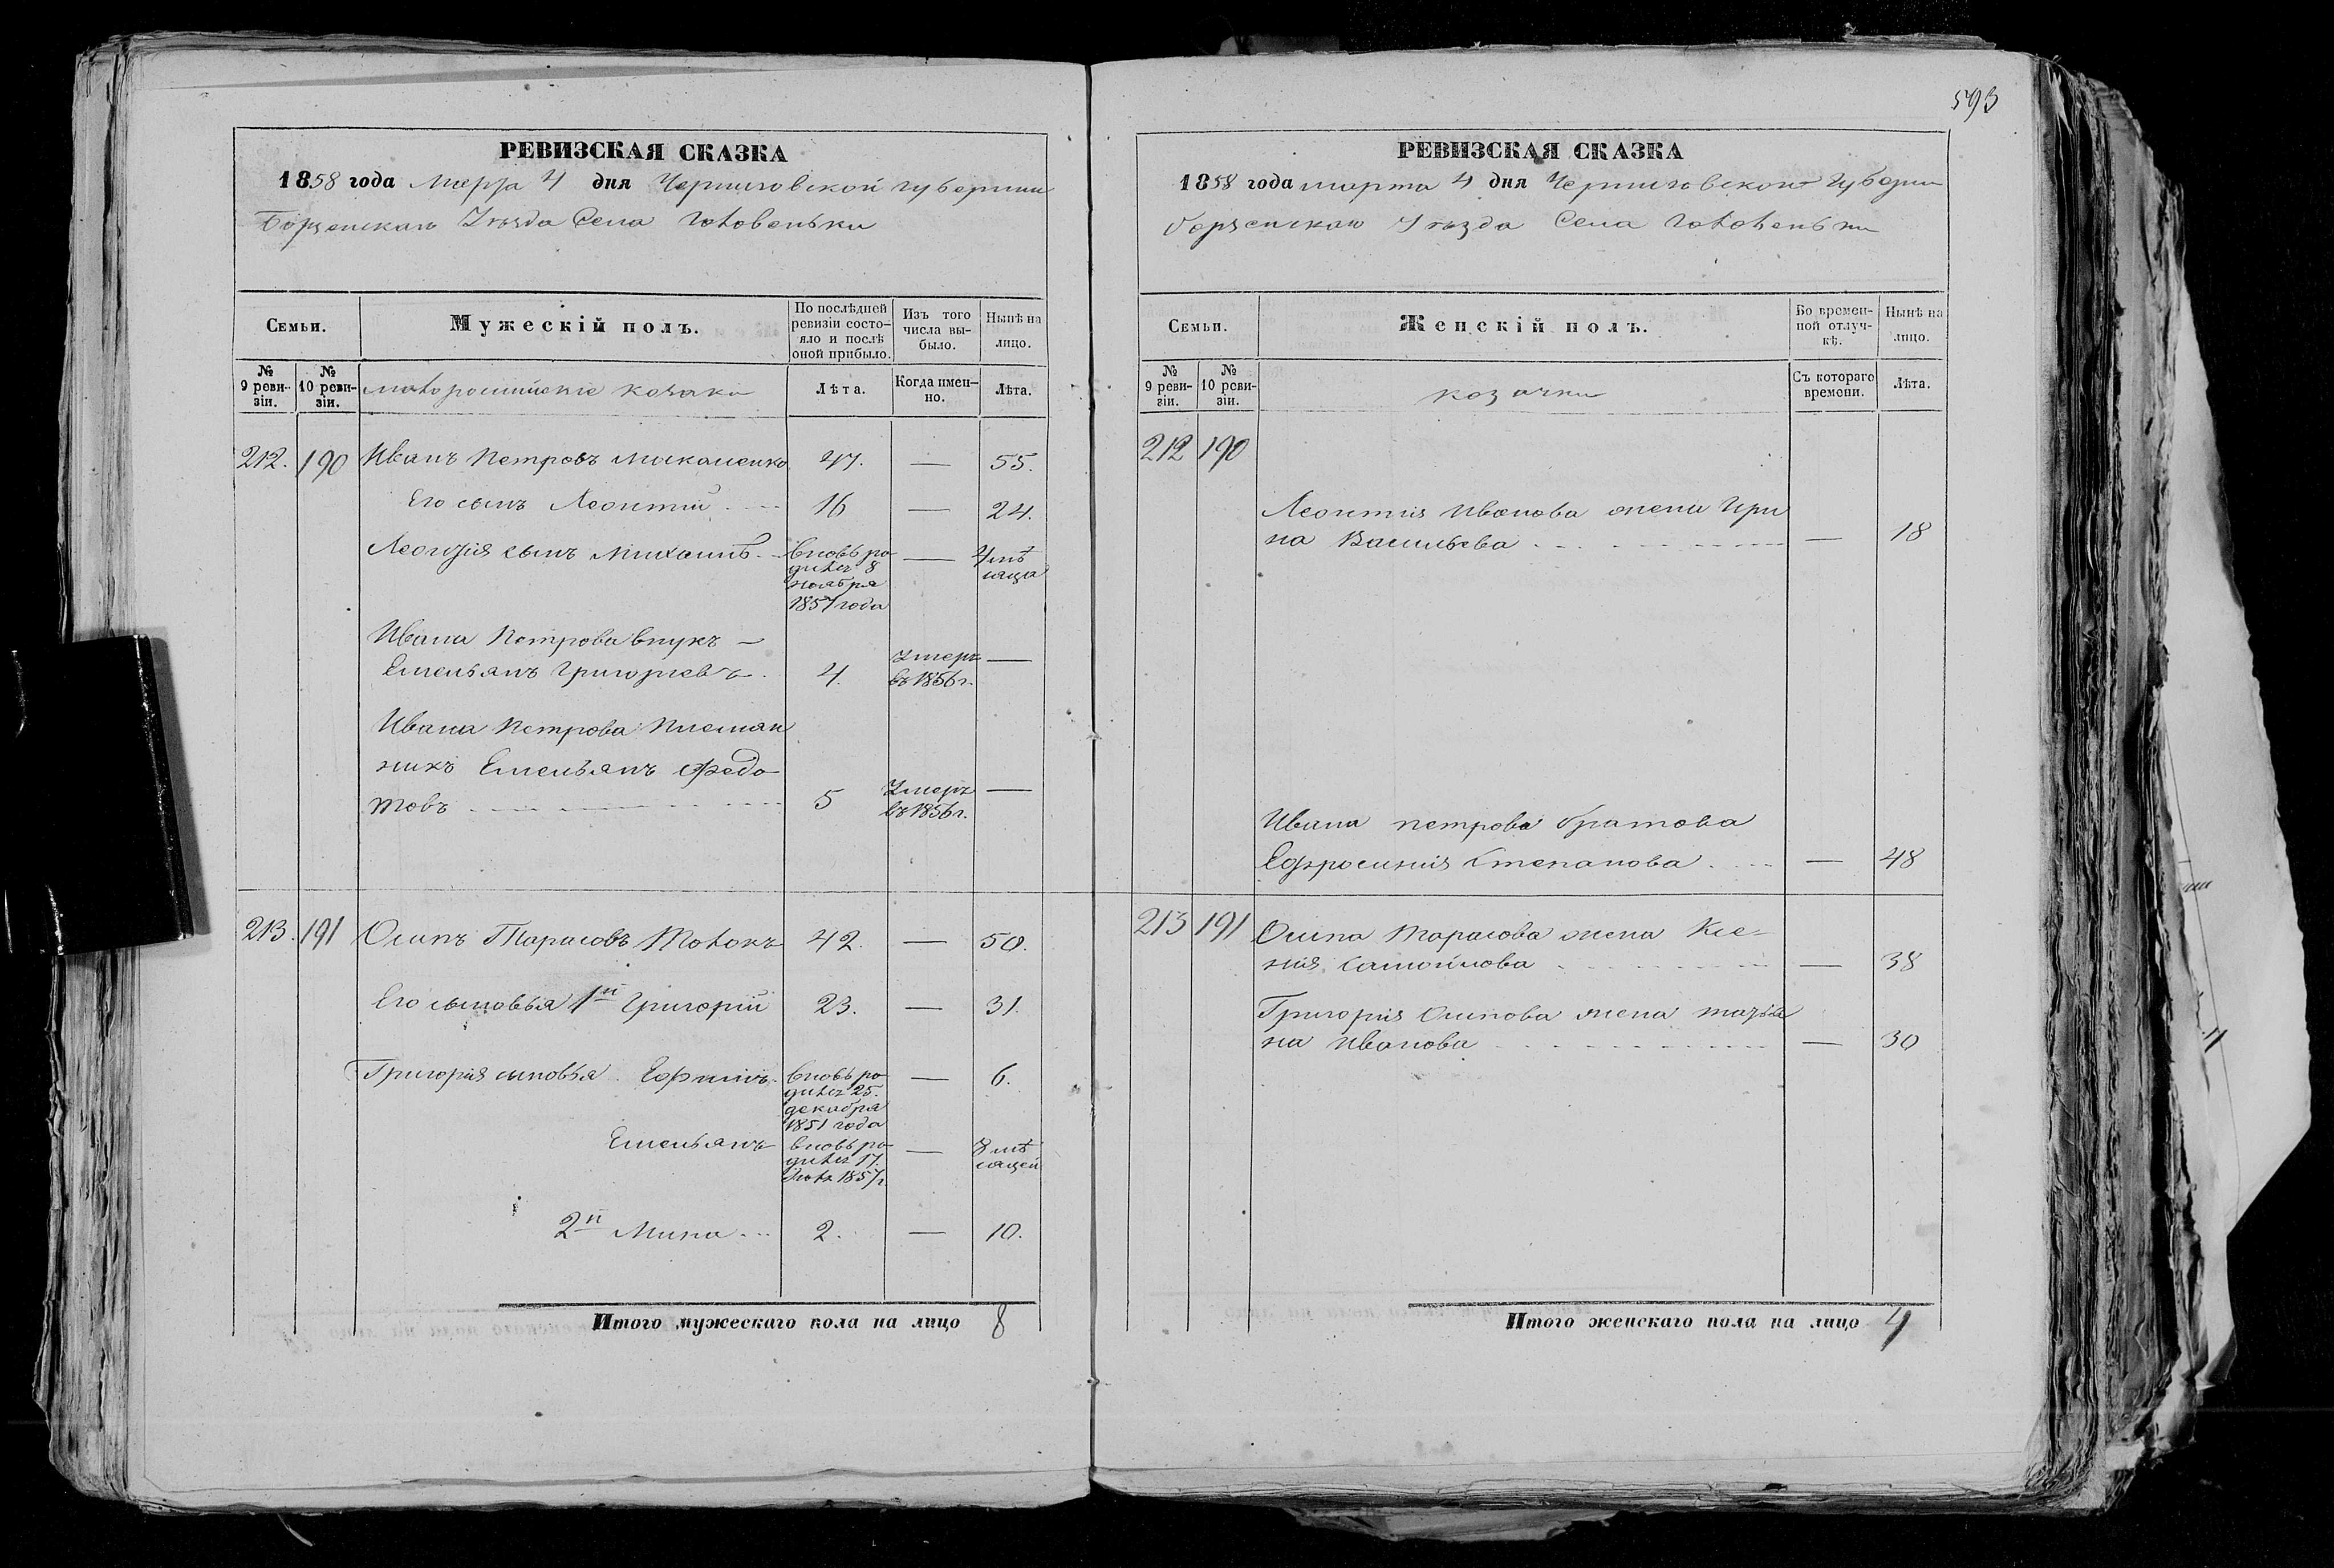 РЕВИЗСКАЯ СКАЗКА
1858 года Марта 4 дня Черниговской губернии
Борзенскаго Уѣзда Села Головеньки
Семьи.
Мужескій полъ.
По послѣдней ревизіи состояло и послѣ оной прибыло.
Изъ того числа выбыло.
Нынѣ на лицо.
№ 9 ревизіи.
№ 10 ревизіи.
малороссійские козаки
Лѣта.
Когда именно.
Лѣта.
212. 190 Иванъ Петровъ 47. — 55.
Его сынъ Леонтій 16 — 24.
Леонтія сынъ Михаилъ вновь ро- — 4 мѣ
дился 8 сяца
ноября
1857 года
Ивана Петрова внукъ —
Емельянъ Григорьевъ 4. Умеръ въ 1856 г. —
Ивана Петрова Племян
никъ Емельянъ Федо
товъ 5 Умеръ въ 1856 г. —
213. 191 Осипъ Тарасовъ Толокъ 42. — 50.
Его сыновья 1й Григорій 23. — 31.
Григорія сыновья Ефимъ вновь ро- — 6.
дился 25.
декабря
1851 года
Емельянъ вновь ро- — 8 мѣ
дился 17. сяцей
Июля 1857 г.
2й Мина 2. — 10.
Итого мужескаго пола на лицо 8
593
РЕВИЗСКАЯ СКАЗКА
1858 года марта 4 дня Черниговской Губерни
борзенскаго Уѣзда Села Головеньки
Семьи.
Женскій полъ.
Во временной отлучкѣ.
Нынѣ на лицо.
№ 9 ревизіи.
№ 10 ревизіи.
козачки
Съ котораго времени.
Лѣта.
212 190
Леонтия Иванова жена Ири
на Васильева — 18
Ивана петрова братова
Ефросиния Степанова — 48
213 191 Осипа Тарасова жена Ксе-
ния Самойлова — 38
Григория Осипова жена татья
на Иванова — 30
Итого женскаго пола на лицо 4